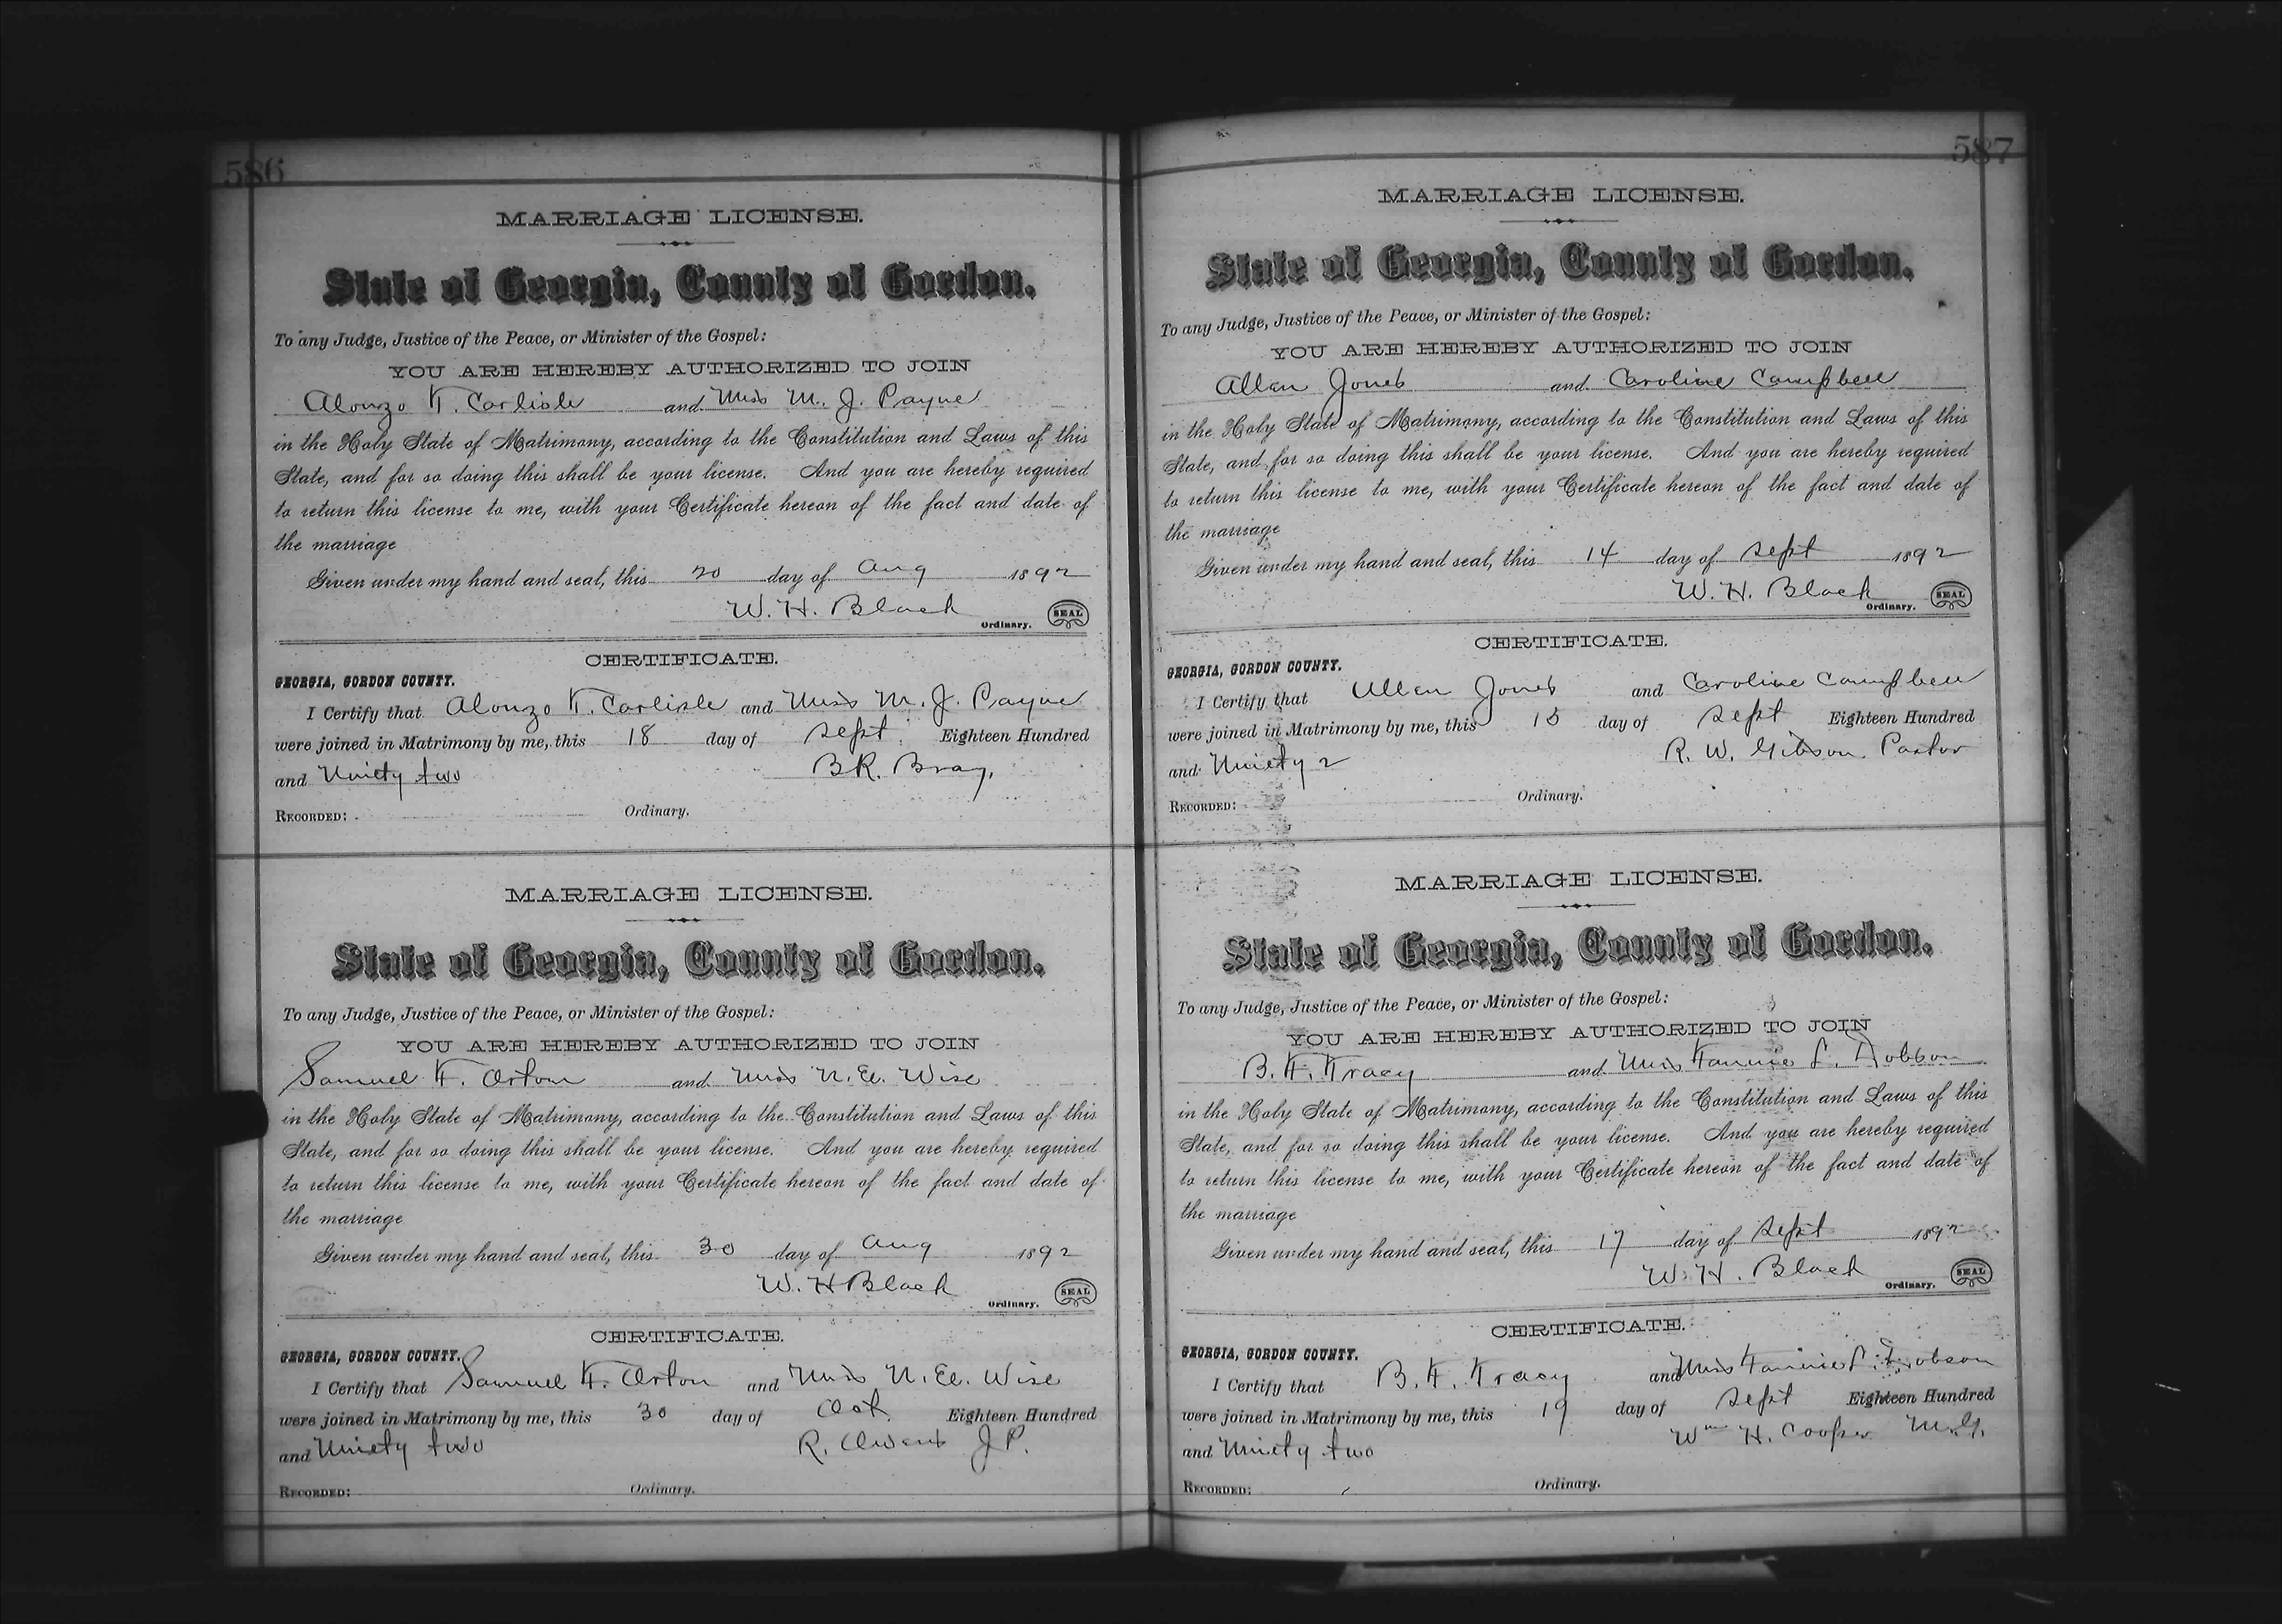 586
MARRIAGE LICENSE.
State of Georgia, County of Gordon.
To any Judge, Justice of the Peace, or Minister of the Gospel:
YOU ARE HEREBY AUTHORIZED TO JOIN
Alonzo T. Carlisle and Miss M. J. Payne
in the Holy State of Matrimony, according to the Constitution and Laws of this
State, and for so doing this shall be your license. And you are hereby required
to return this license to me, with your Certificate hereon of the fact and date of
the marriage
Given under my hand and seal, this 20 day of Aug 1892
W. H. Black
Ordinary. SEAL
CERTIFICATE.
GEORGIA, GORDON COUNTY.
I Certify that Alonzo T. Carlisle and Miss M. J. Payne
were joined in Matrimony by me, this 18 day of Sept Eighteen Hundred
and Ninety two B.R. Bray,
RECORDED: Ordinary.
MARRIAGE LICENSE.
State of Georgia, County of Gordon.
To any Judge, Justice of the Peace, or Minister of the Gospel:
YOU ARE HEREBY AUTHORIZED TO JOIN
Samuel F. Orton and Miss N. E. Wise
in the Holy State of Matrimony, according to the Constitution and Laws of this
State, and for so doing this shall be your license. And you are hereby required
to return this license to me, with your Certificate hereon of the fact and date of
the marriage
Given under my hand and seal, this 30 day of Aug 1892
W. H Black
Ordinary. SEAL
CERTIFICATE.
GEORGIA, GORDON COUNTY.
I Certify that Samuel F. Orton and Miss N. E. Wise
were joined in Matrimony by me, this 30 day of Oct Eighteen Hundred
and Ninety two R. Owens J P.
RECORDED: Ordinary.
587
MARRIAGE LICENSE.
State of Georgia, County of Gordon.
To any Judge, Justice of the Peace, or Minister of the Gospel:
YOU ARE HEREBY AUTHORIZED TO JOIN
Allen Jones and Caroline Campbell
in the Holy State of Matrimony, according to the Constitution and Laws of this
State, and for so doing this shall be your license. And you are hereby required
to return this license to me, with your Certificate hereon of the fact and date of
the marriage
Given under my hand and seal, this 14 day of Sept 1892
W. H. Black
Ordinary. SEAL
CERTIFICATE.
GEORGIA, GORDON COUNTY.
I Certify that Allen Jones and Caroline Campbell
were joined in Matrimony by me, this 15 day of Sept Eighteen Hundred
and Ninety 2 R. W. Gibson. Pastor
RECORDED: Ordinary.
MARRIAGE LICENSE.
State of Georgia, County of Gordon.
To any Judge, Justice of the Peace, or Minister of the Gospel:
YOU ARE HEREBY AUTHORIZED TO JOIN
B. F. Tracy and Miss Fannie L. Dobson
in the Holy State of Matrimony, according to the Constitution and Laws of this
State, and for so doing this shall be your license. And you are hereby required
to return this license to me, with your Certificate hereon of the fact and date of
the marriage
Given under my hand and seal, this 17 day of Sept 1892
W. H. Black
Ordinary. SEAL
CERTIFICATE.
GEORGIA, GORDON COUNTY.
I Certify that B. F. Tracy and Miss Fannie L. Dobson
were joined in Matrimony by me, this 19 day of Sept Eighteen Hundred
and Ninety two Wm H. Cooper M.G.
RECORDED: Ordinary.